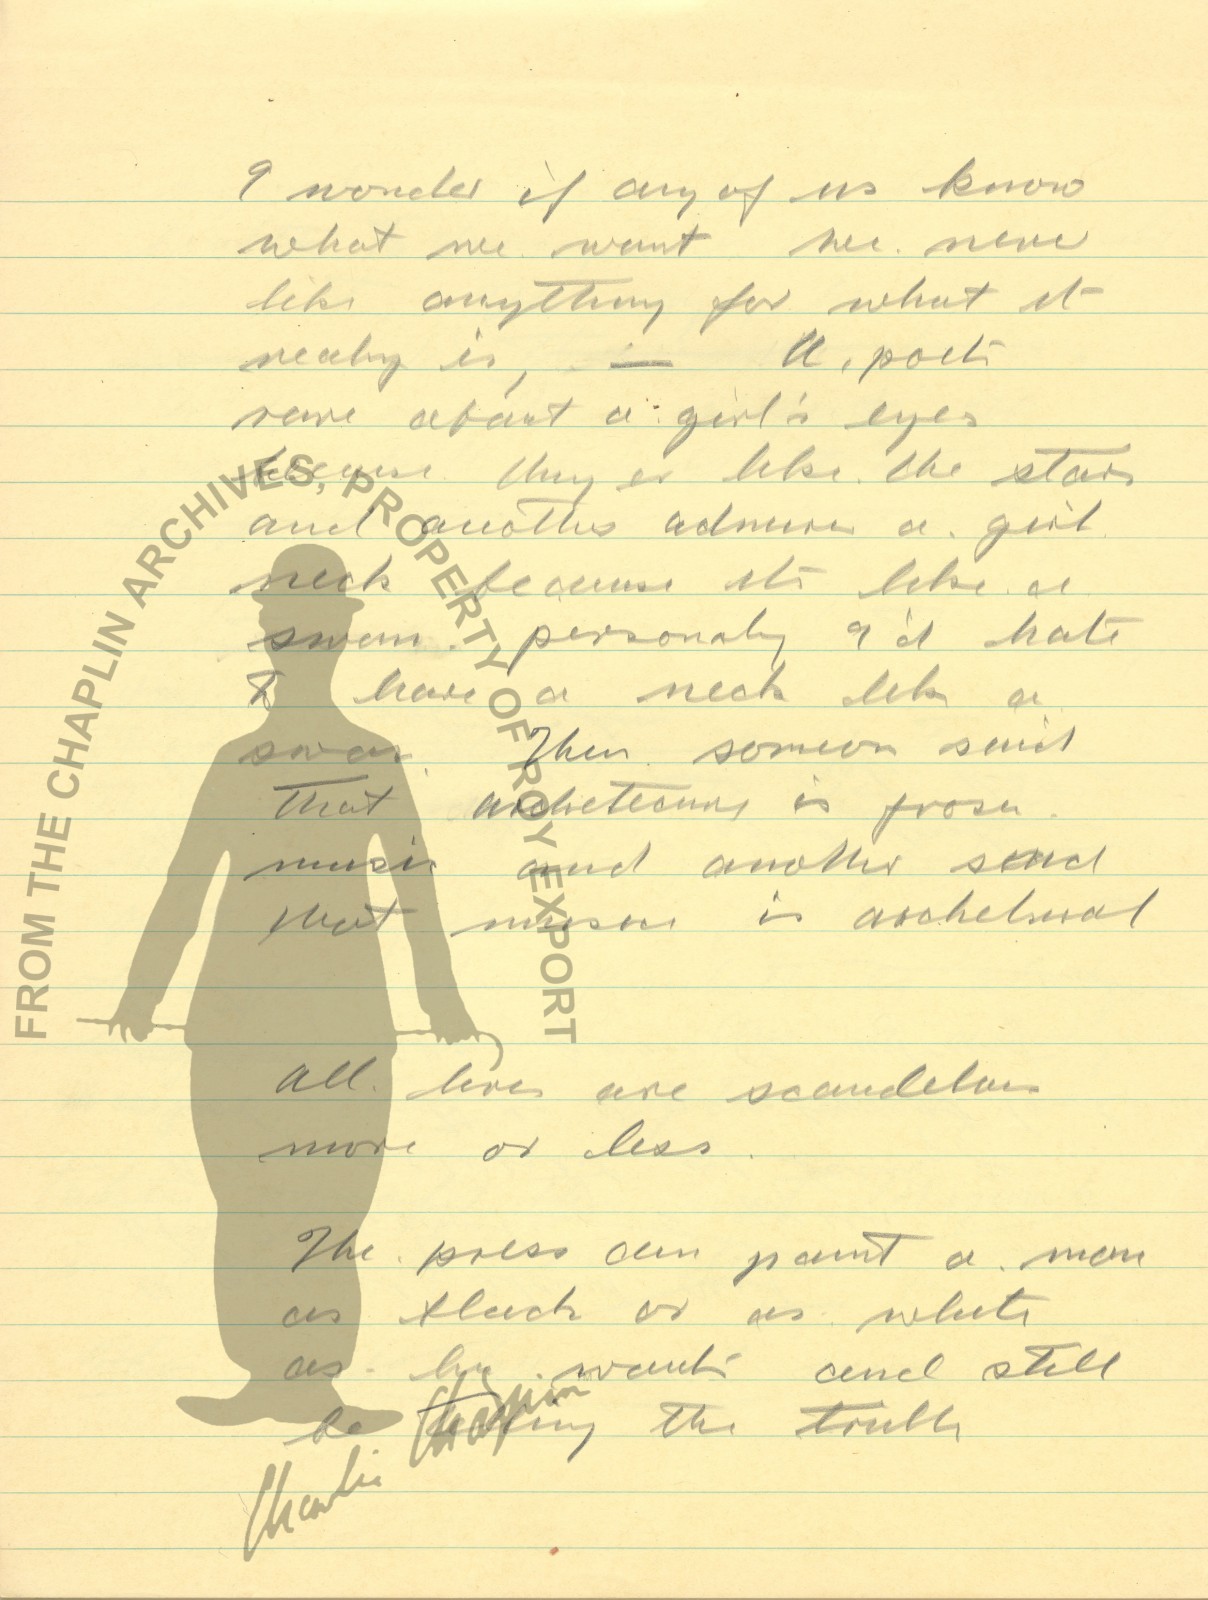 I wonder if any of us know
what we want we never
like anything for what it
really is, — A poet
rave about a girl's eyes
because they er like the stars
and another admires a girl
neck because its like a
swan. personaly I'd hate
to have a neck like a
swan. Then someon said
that is frosen
music and another said
that music is
All lives are
more or less.
The press can paint a man
as black or as white
as he wants and still
be telling the truth
FROM THE CHAPLIN ARCHIVES, PROPERTY OF ROY EXPORT
Charlie Chaplin